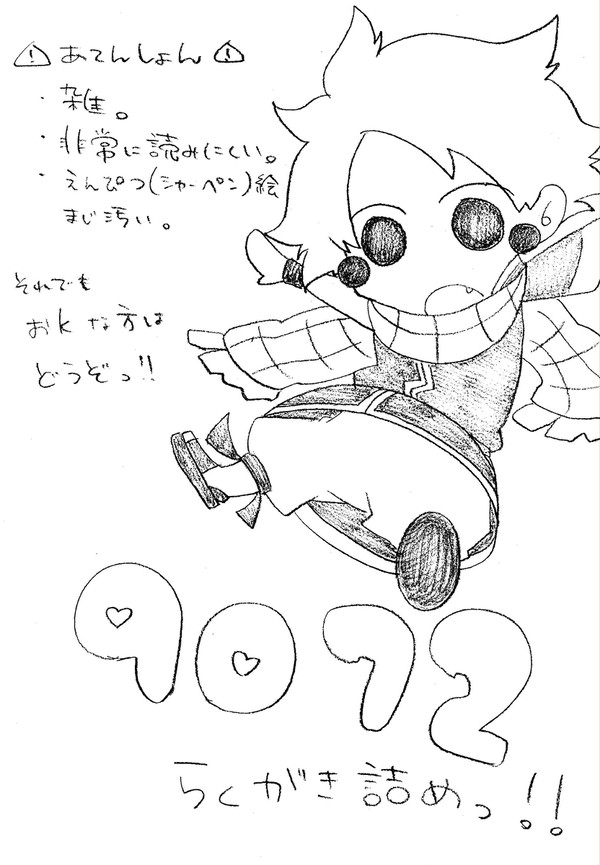 ⚠ あてんしょん ⚠
・雑。
・非常に読みにくい。
・えんぴつ(シャーペン)絵
まじ汚い。
それでも
おkな方は
どうぞっ!!
9072
らくがき詰めっ!!